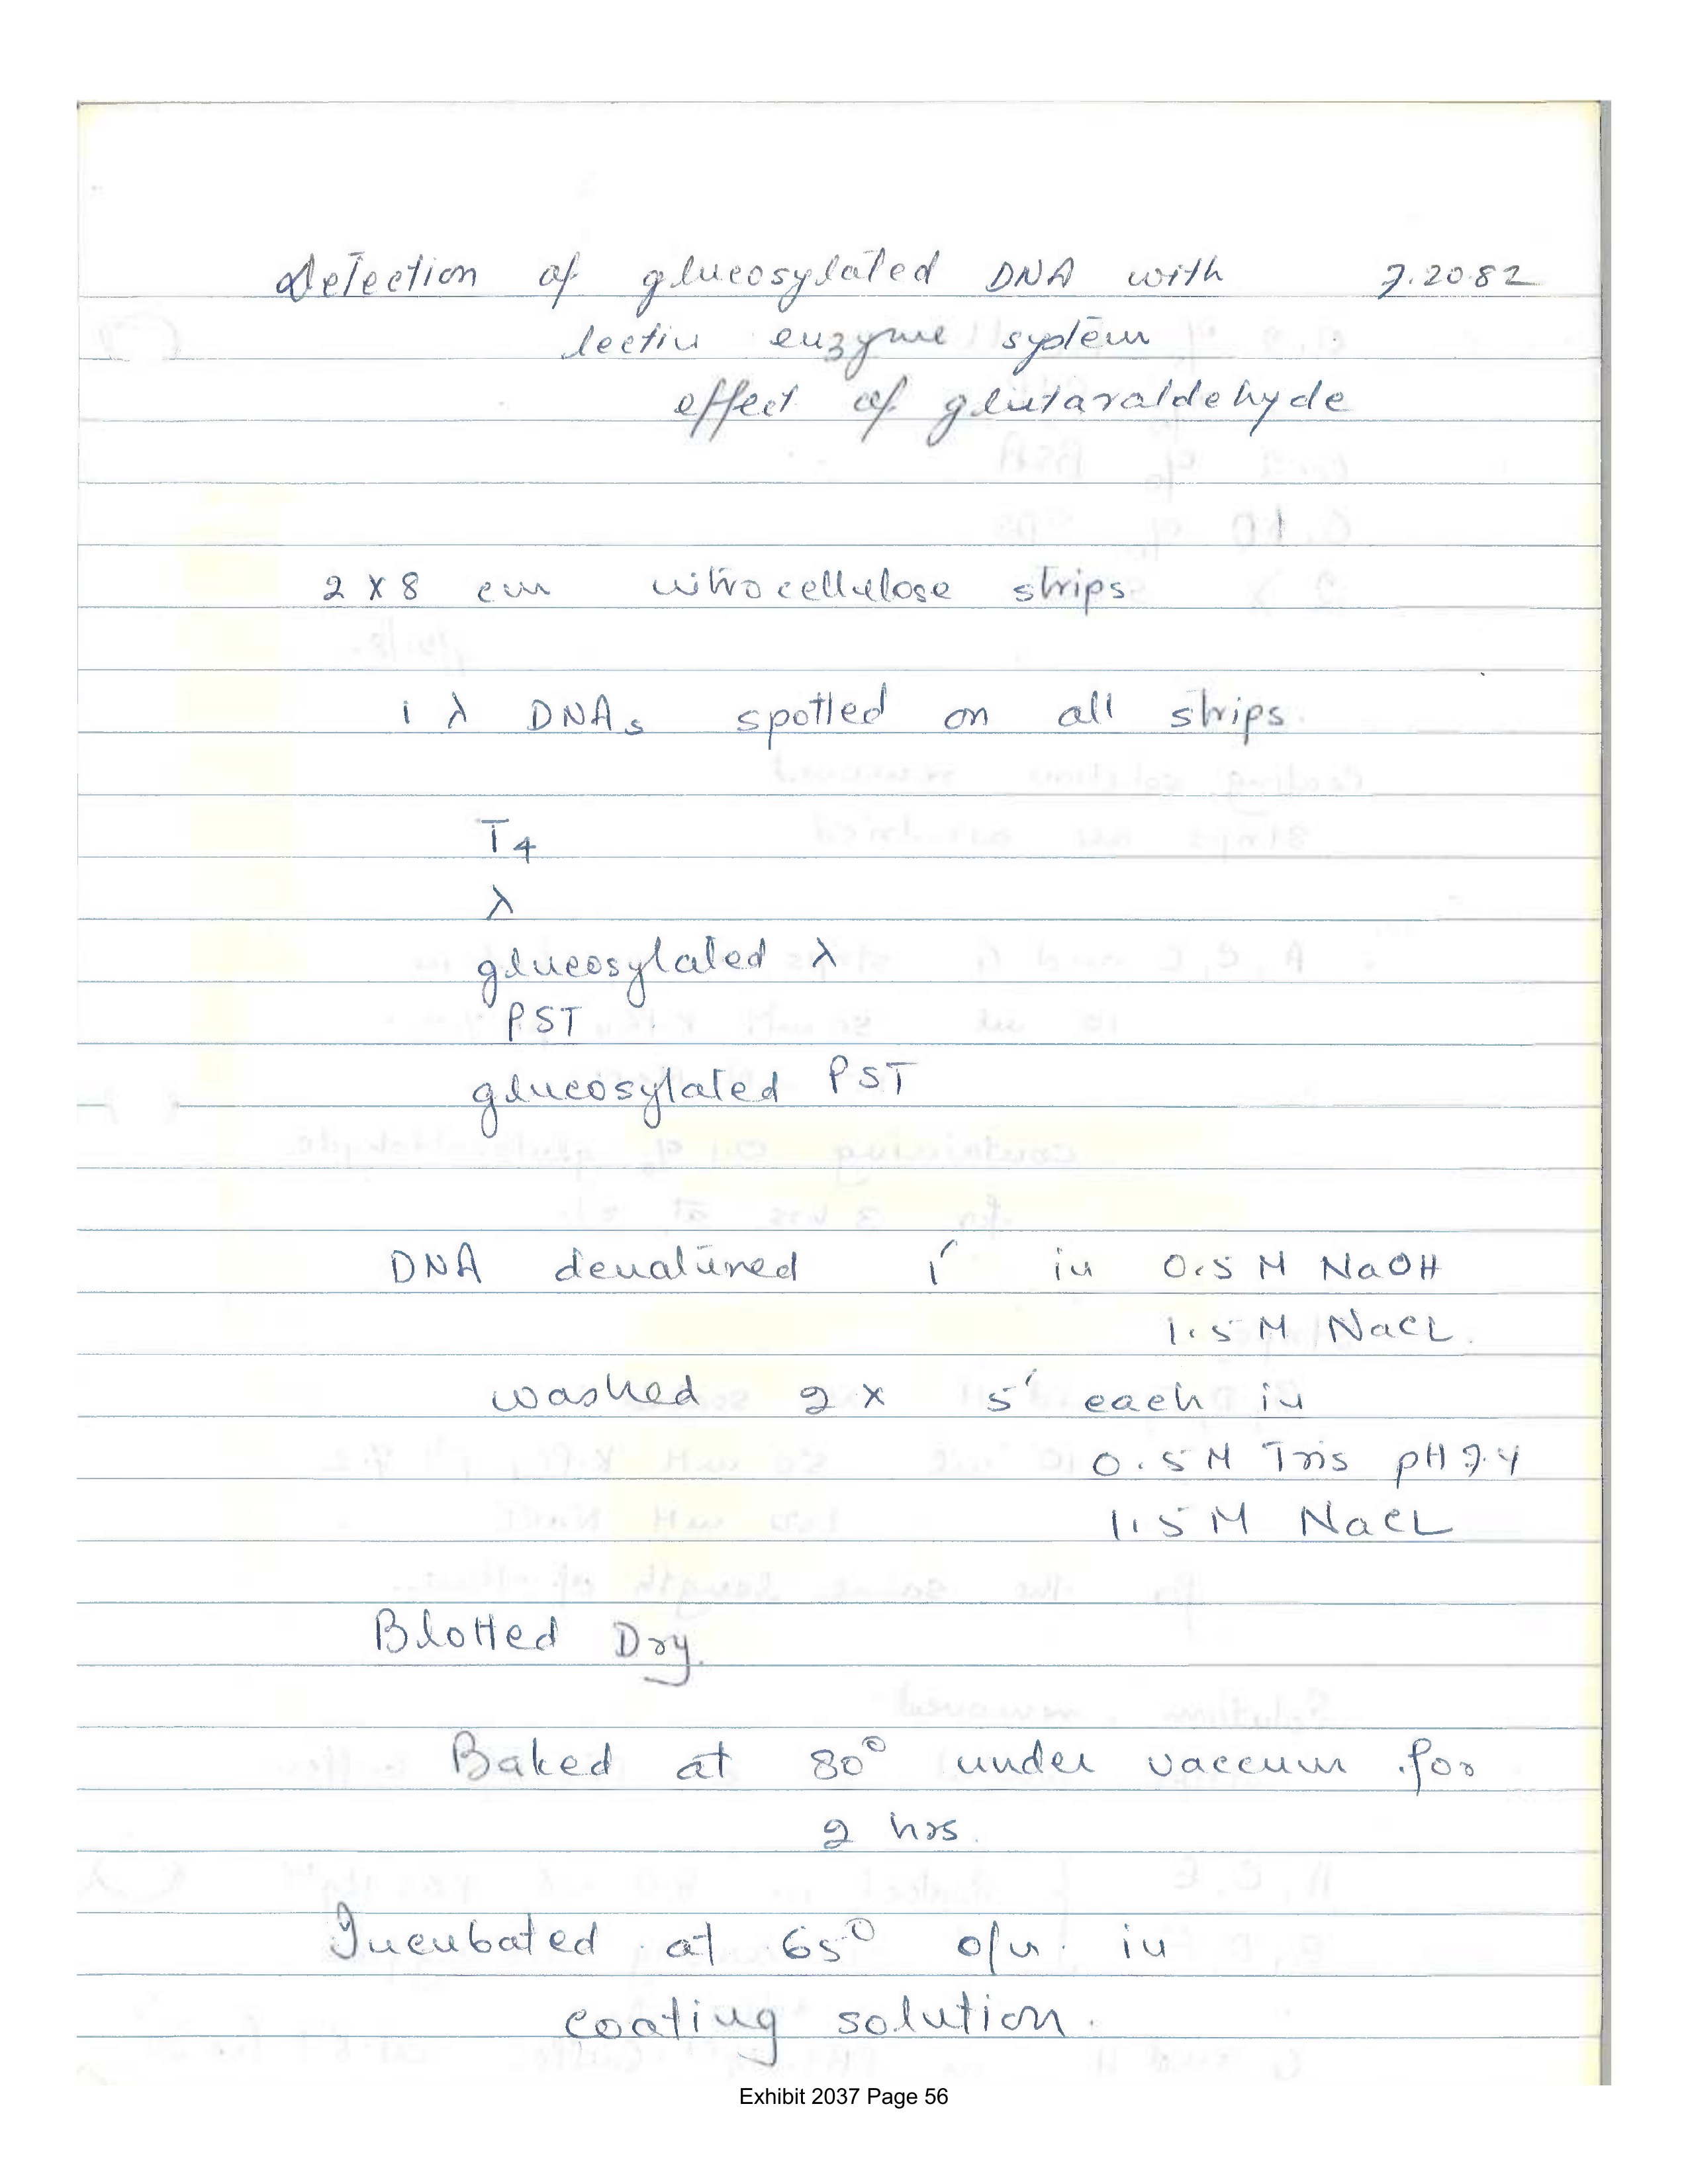 Detection of glucosylated DNA with 7.20.82
lectin enzyme system
effect of glutaraldehyde
2 X 8 cm nitrocellulose strips
1 λ DNAs spotted on all strips.
T4
λ
glucosylated λ
PST
glucosylated PST
DNA denatured 1' in 0.5 M NaOH
1.5 M NaCL.
washed 2 x 5' each in
0.5 M Tris pH 7.4
1.5 M NaCL
Blotted Dry.
Baked at 80° under vaccum for
2 hrs.
Incubated at 65° o/n. in
coating solution.
Exhibit 2037 Page 56